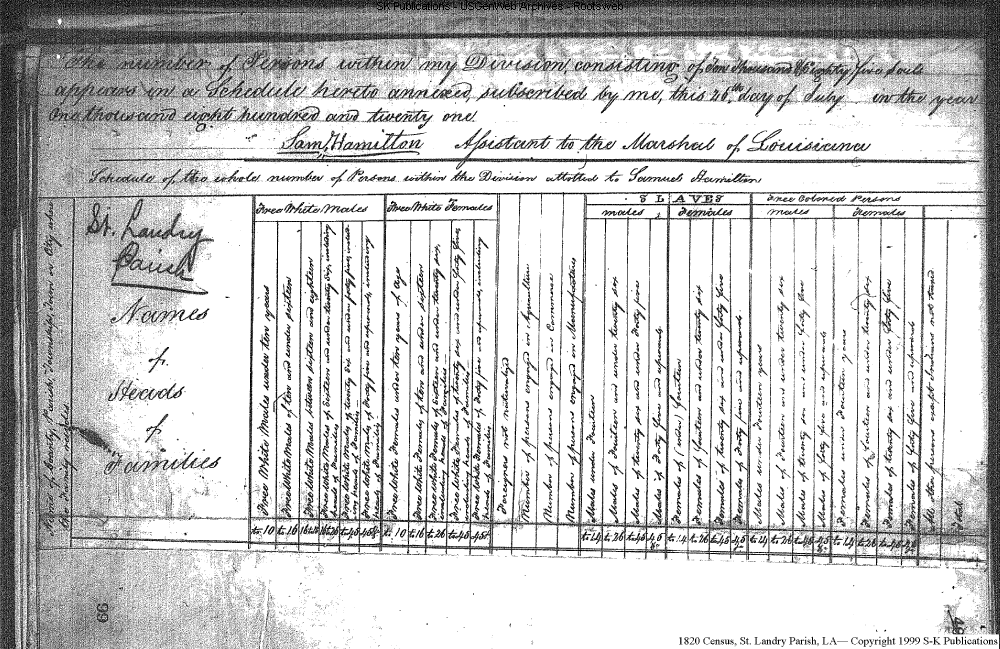 SK Publications - USGenWeb Archives - Rootsweb
The number of Persons within my Division, consisting of Ten Thousand & Seventy five Souls
appears in a Schedule hereto annexed, subscribed by me, this 26th day of July in the year
One thousand eight hundred and twenty one
Sam. Hamilton Assistant to the Marshal of Louisiana
Schedule of the whole number of Persons within the Division allotted to Samuel Hamilton
St. Landry
Parish
Names
of
Heads
of
Families
Free White Males
Free White Females
SLAVES
males
Females
Free Colored Persons
males
Females
Free White Males under ten years
Free White Males of ten and under sixteen
Free White Males between sixteen and eighteen
Free White Males of sixteen and under twenty six, including heads of families
Free White Males of twenty six and under forty five, including heads of families
Free White Males of forty five and upwards, including heads of families
Free White Females under ten years of age
Free White Females of ten and under sixteen
Free White Females of sixteen and under twenty six, including heads of families
Free White Females of twenty six and under forty five, including heads of families
Free White Females of forty five and upwards, including heads of families
Foreigners not naturalized
Number of persons engaged in Agriculture
Number of persons engaged in Commerce
Number of persons engaged in Manufactures
Males under fourteen
Males of fourteen and under twenty six
Males of twenty six and under forty five
Males of forty five and upwards
Females of (under) fourteen
Females of fourteen and under twenty six
Females of twenty six and under forty five
Females of forty five and upwards
Males under fourteen years
Males of fourteen and under twenty six
Males of twenty six and under forty five
Males of forty five and upwards
Females under fourteen years
Females of fourteen and under twenty six
Females of twenty six and under forty five
Females of forty five and upwards
All other persons except Indians not taxed
Total
to 10 to 16 16 to 18 16 to 26 to 45 45 & to 10 to 16 to 26 to 45 45 & to 14 to 26 to 45 45 & to 14 to 26 to 45 45 & to 14 to 26 to 45 45 & to 14 to 26 to 45 45 &
66
1820 Census, St. Landry Parish, LA— Copyright 1999 S-K Publications